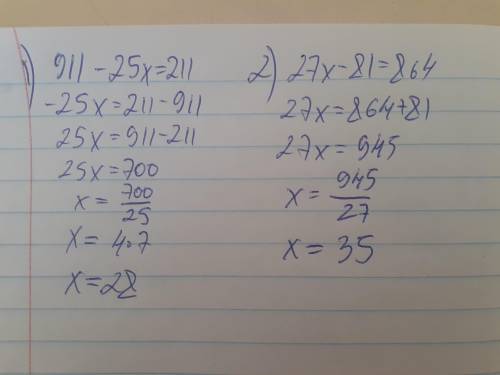 1) 911 - 25x = 211
-25x = 211 - 911
25x = 911 - 211
25x = 700
x = 700/25
x = 4·7
x = 28
2) 27x - 81 = 864
27x = 864 + 81
27x = 945
x = 945/27
x = 35